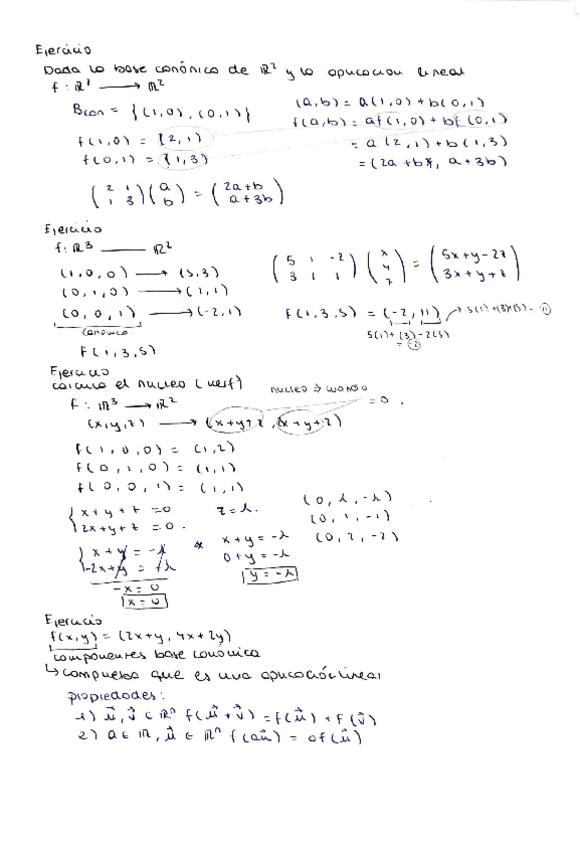 Ejercicio
Dada la base canónica de ℝ² y la aplicacion lineal
f : ℝ² → ℝ²
Bcan = {(1,0), (0,1)}
f(1,0) = (2,1)
f(0,1) = (1,3)
(a,b) = a(1,0) + b(0,1)
f(a,b) = af(1,0) + bf(0,1)
= a(2,1) + b(1,3)
= (2a+b, a+3b)
(2 1 / 1 3)(a / b) = (2a+b / a+3b)
Ejercicio
f: ℝ³ — ℝ²
(1,0,0) → (5,3)
(0,1,0) → (1,1)
(0,0,1) → (-2,1)
canonica
F(1,3,5)
(5 1 -2 / 3 1 1)(x / y / z) = (5x+y-2z / 3x+y+z)
f(1,3,5) = (-2, 11)
5(1)+(3)-2(5)
= -2
Ejercicio
calcula el nucleo (kerf)
nucleo ⇒ cuando
= 0.
f : ℝ³ → ℝ²
(x,y,z) → (x+y+z, 2x+y+z)
f(1,0,0) = (1,2)
f(0,1,0) = (1,1)
f(0,0,1) = (1,1)
{x+y+z = 0
2x+y+z = 0.
z = λ.
(0, λ, -λ)
(0, 1, -1)
(0, 2, -2)
{x+y = -λ
-2x+y = +λ
-x = 0
x = 0
* x+y = -λ
0+y = -λ
y = -λ
Ejercicio
f(x,y) = (2x+y, 4x+2y)
componentes base canónica
↳ comprueba que es una aplicación lineal
propiedades:
1) u⃗, v⃗ ∈ ℝⁿ f(u⃗+v⃗) = f(u⃗) + f(v⃗)
2) a ∈ ℝ, u⃗ ∈ ℝⁿ f(au⃗) = af(u⃗)